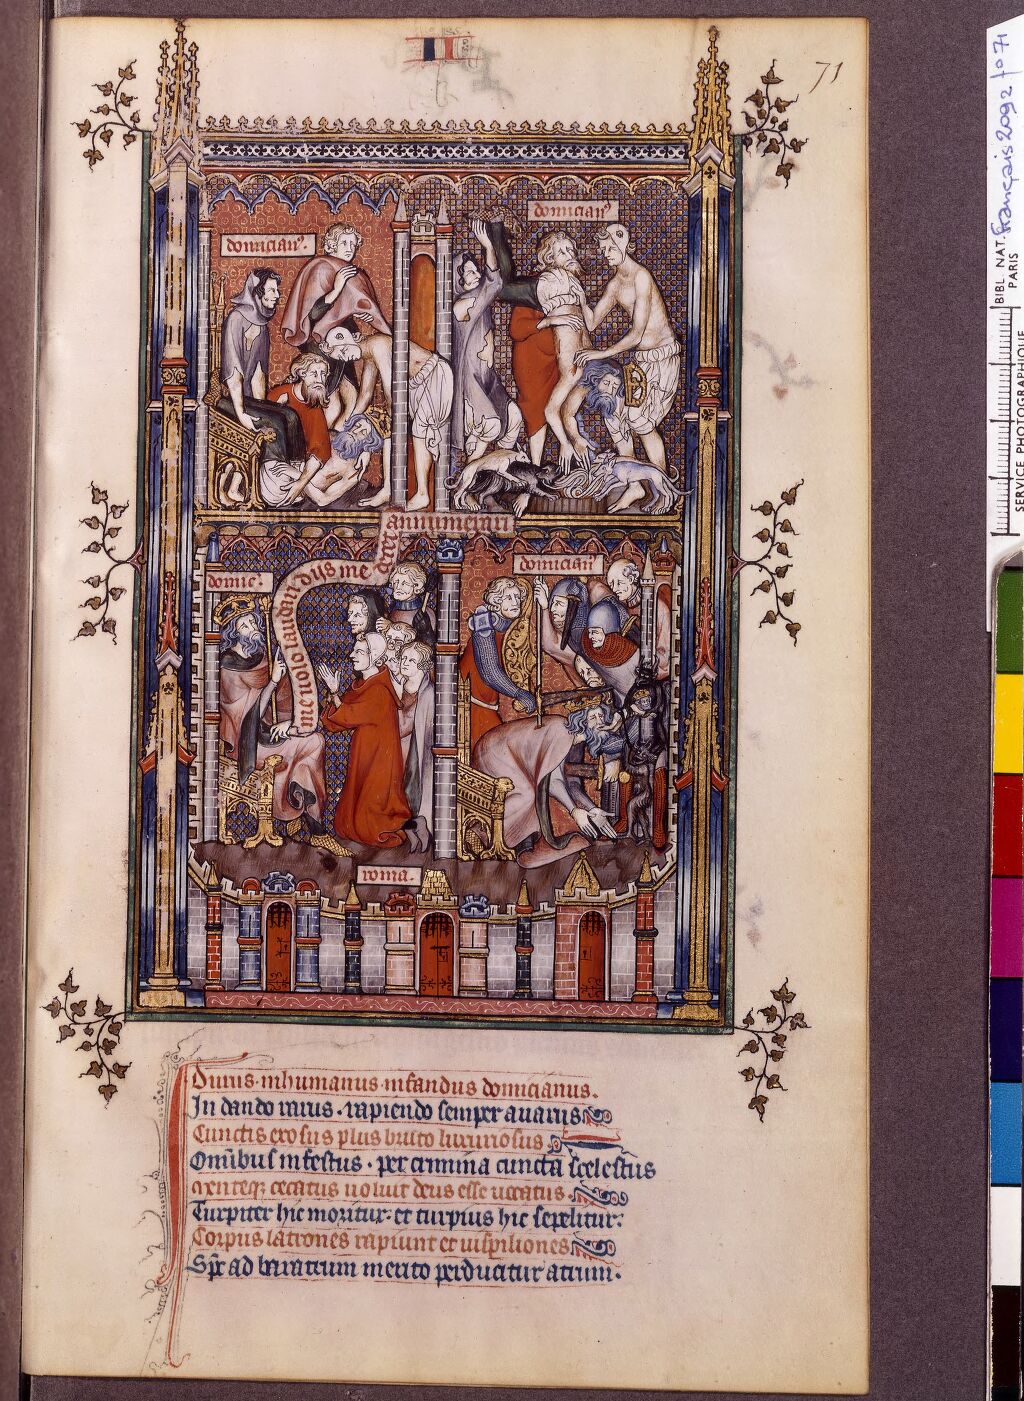 71
domician⁹.
domician⁹
domic͛.
me uolo laudari dijs me
decet
annumerari
domician͛
roma.
Durus inhumanus infandus domicianus.
In dando rarus . rapiendo semper auarus
Cunctis exosus plus bruto luxuriosus
Om̄ibus infestus . per crimina cuncta scelestus
Menteqꝫ cecatus uoluit deus esse uocatus.
Turpiter hic moritur. et turpius hic sepelitur.
Corpus latrones rapiunt et uispiliones
Sp̄c ad baratrum merito perducitur atrum.
BIBL. NAT.
PARIS
Français 2092 f° 71
SERVICE PHOTOGRAPHIQUE